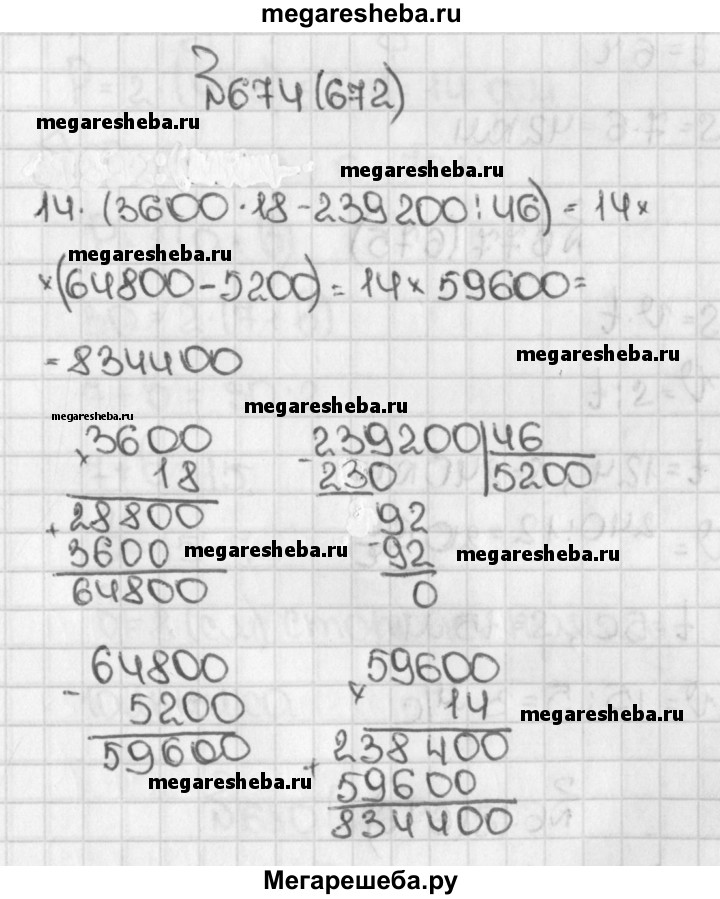 megaresheba.ru
№674(672)
megaresheba.ru
megaresheba.ru
14·(3600·18-239200:46)=14×
megaresheba.ru
×(64800-5200)=14×59600=
=834400
megaresheba.ru
megaresheba.ru
megaresheba.ru
×3600
18
+28800
3600
64800
megaresheba.ru
-239200|46
230 5200
92
-92
0
megaresheba.ru
64800
- 5200
59600
megaresheba.ru
59600
× 14
+238400
59600
834400
megaresheba.ru
Мегарешеба.ру